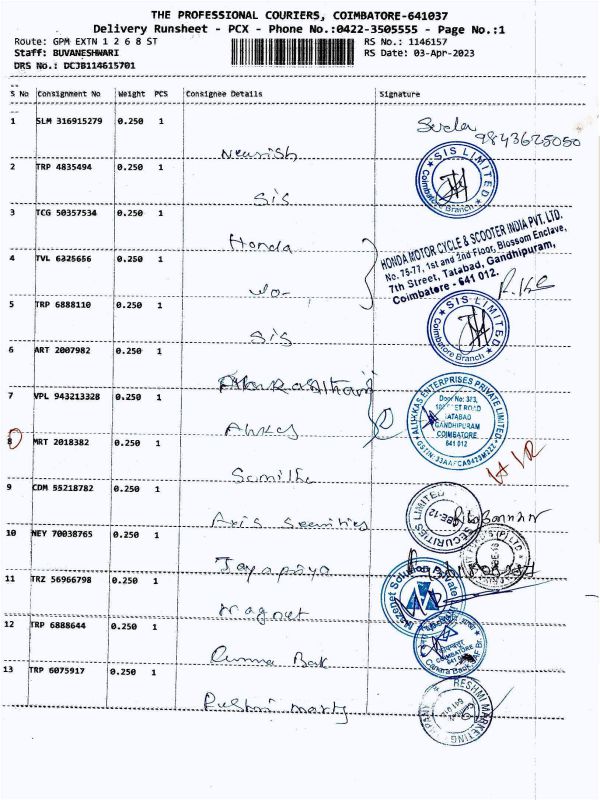 THE PROFESSIONAL COURIERS, COIMBATORE-641037
Delivery Runsheet - PCX - Phone No.:0422-3505555 - Page No.:1
Route: GPM EXTN 1 2 6 8 ST RS No.: 1146157
Staff: BUVANESHWARI RS Date: 03-Apr-2023
DRS No.: DCJB114615701
S No Consignment No Weight PCS Consignee Details Signature
1 SLM 316915279 0.250 1
9843625050
2 TRP 4835494 0.250 1
SIS LIMITED
Coimbatore Branch
Sis
3 TCG 50357534 0.250 1
Honda
HONDA MOTOR CYCLE & SCOOTER INDIA PVT. LTD.
No. 75-77, 1st and 2nd Floor, Blossom Enclave,
7th Street, Tatabad, Gandhipuram,
Coimbatore - 641 012.
4 TVL 6325656 0.250 1
5 TRP 6888110 0.250 1
SIS LIMITED
Coimbatore Branch
Sis
6 ART 2007982 0.250 1
7 VPL 943213328 0.250 1
ALUKKAS ENTERPRISES PRIVATE LIMITED
Door No: 373,
TATABAD
GANDHIPURAM
COIMBATORE
641 012
8 MRT 2018382 0.250 1
9 CDM 55218782 0.250 1
SECURITIES LIMITED
CBE-12
Axis Securities
10 NEY 70038765 0.250 1
Jayapriya
11 TRZ 56966798 0.250 1
Magnet Solution Private
Magnet
12 TRP 6888644 0.250 1
COIMBATORE
Canara Bank
13 TRP 6075917 0.250 1
RESHMI MARKETING